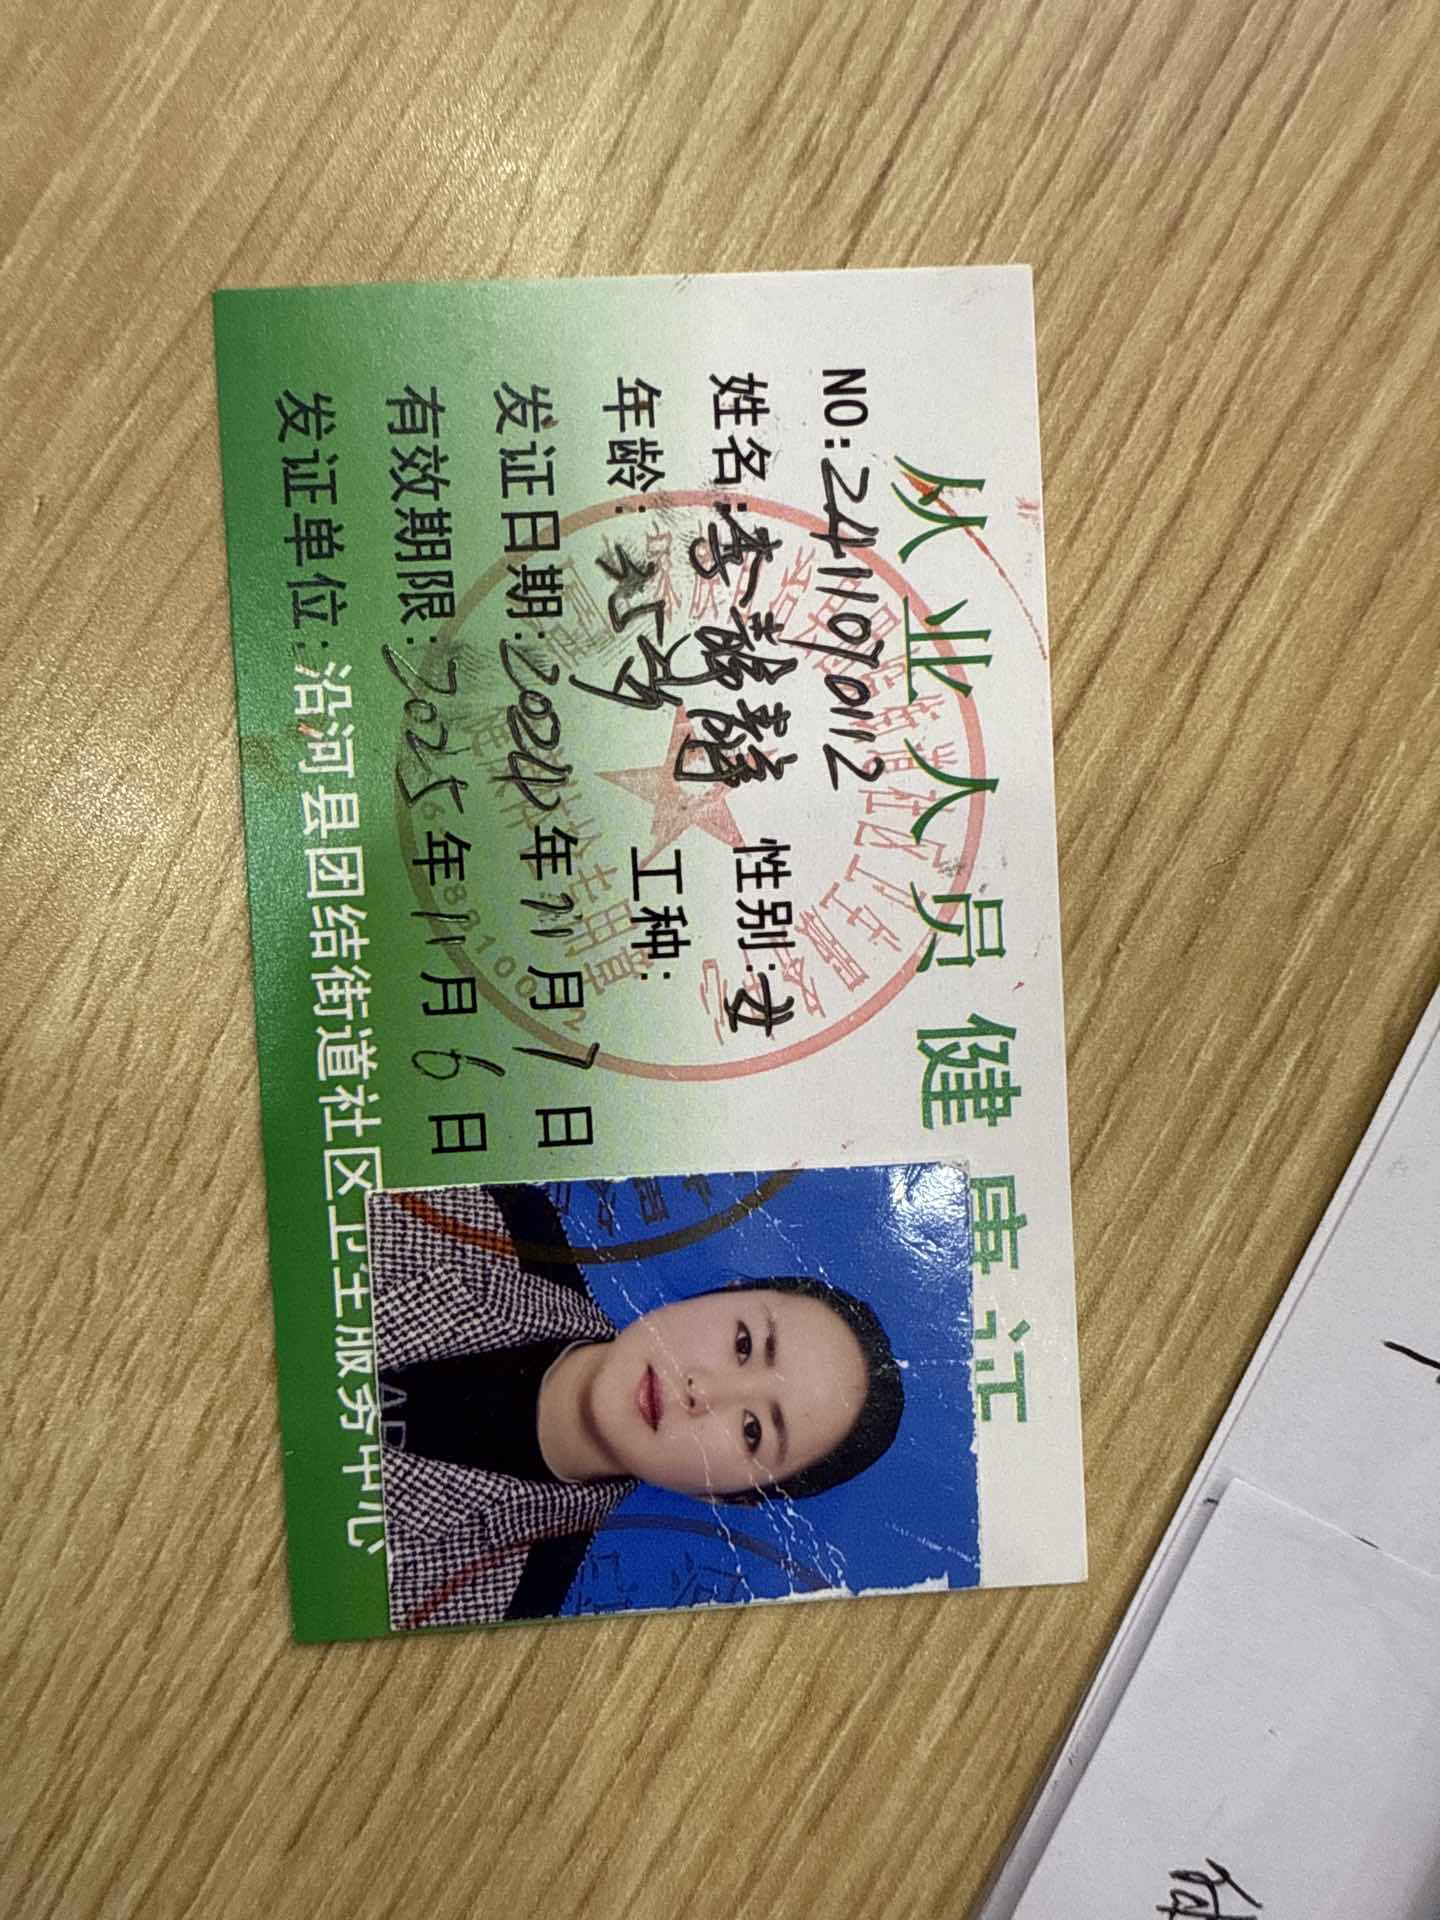 从业人员健康证
NO:2411070112
姓名:李 性别:女
年龄: 工种:
发证日期:2024年11月7日
有效期限:2025年11月6日
发证单位:沿河县团结街道社区卫生服务中心